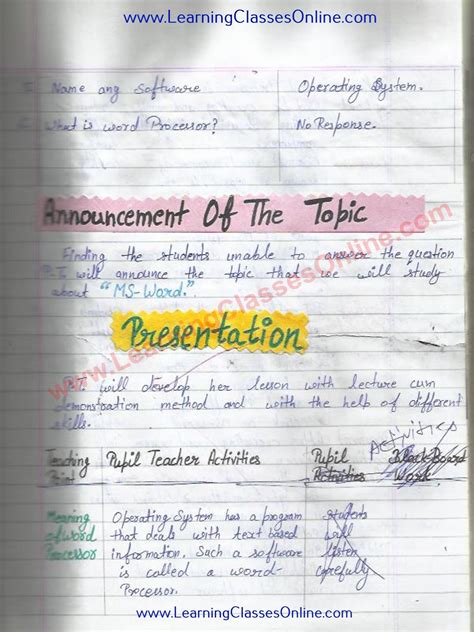 www.LearningClassesOnline.com
Name any Software
Operating System.
What is word Processor?
No Response.
Announcement Of The Topic
Finding the students unable to answer the question
P.T. will announce the topic that we will study
about "MS-Word."
Presentation
P.T. will develop her lesson with lecture cum
demonstration method and with the help of different
skills.
Activities
Teaching Point
Pupil Teacher Activities
Pupil Activities
Black Board Work
Meaning of word Processor
Operating System has a program
that deals with text based
information. Such a software
is called a word-
Processor.
Students
will
listen
carefully
www.LearningClassesOnline.com
www.LearningClassesOnline.com